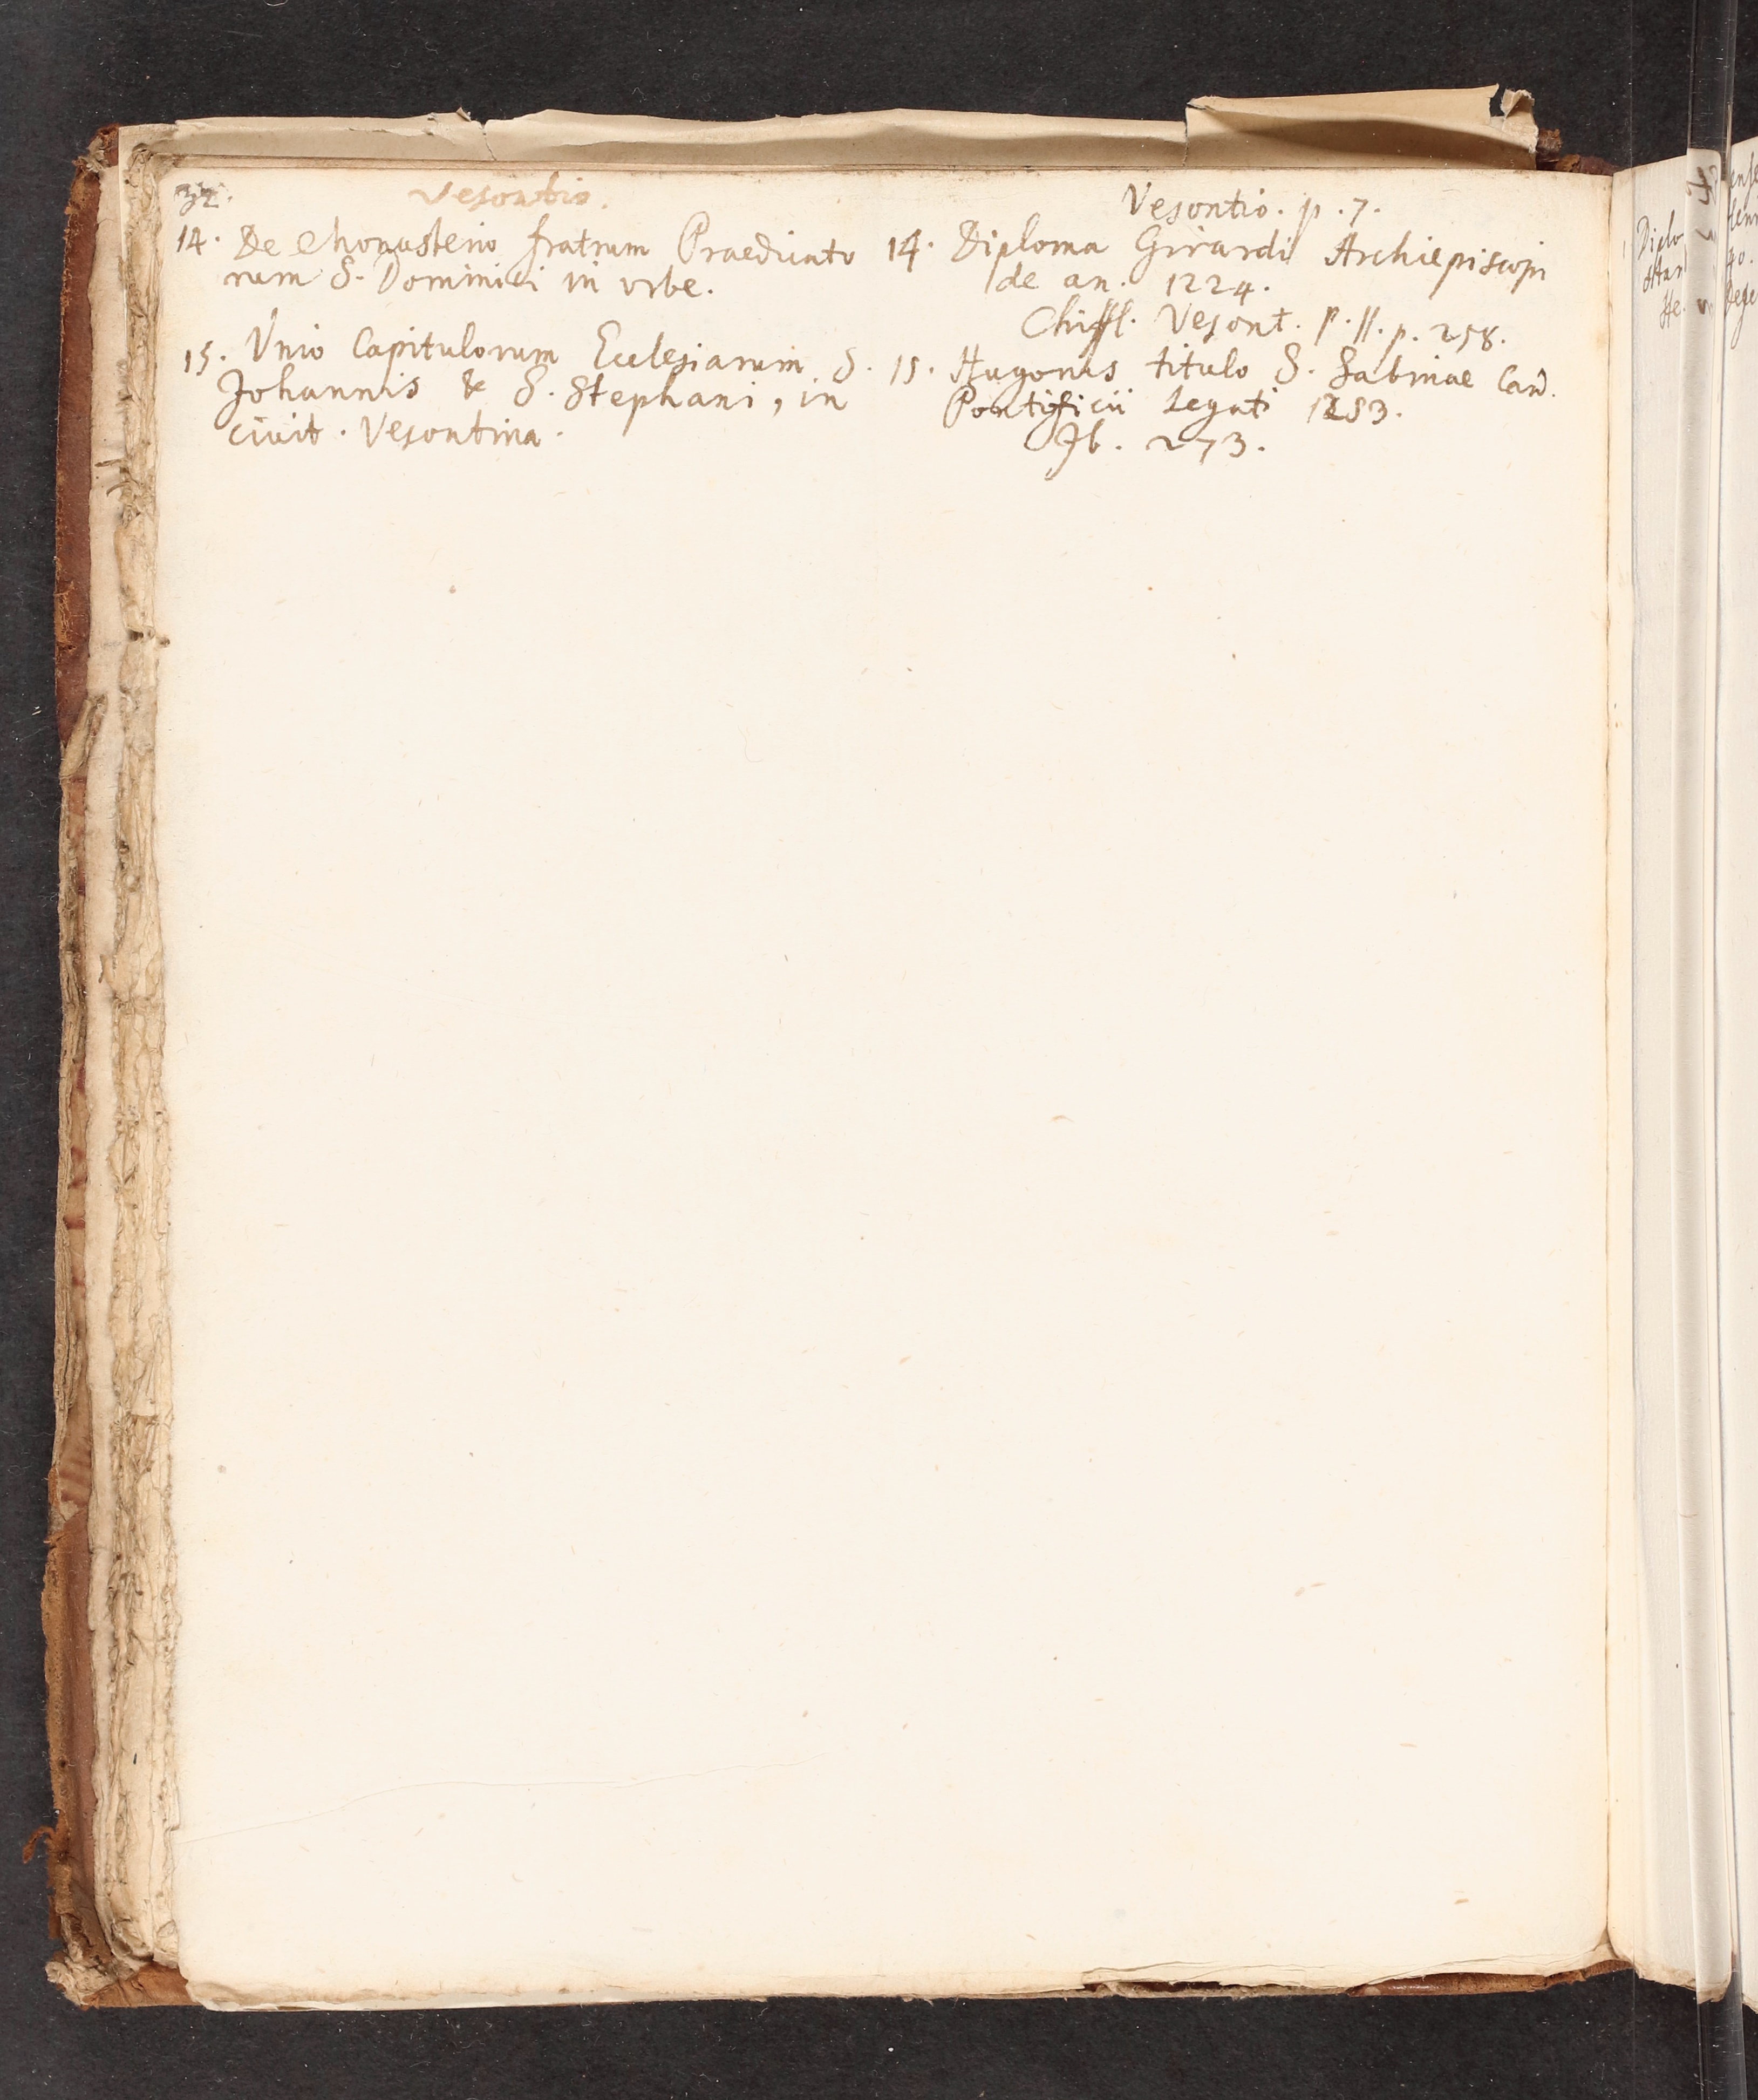 32.
Vesontio.
14. De Monasterio fratrum Praedicato
rum S. Dominici in vrbe.
15. Vnio Capitulorum Ecclesiarum S.
Johannis & S. Stephani, in
civit. Vesontina.
Vesontio. p. 7.
14. Diploma Girardi Archiepiscopi
de an. 1224.
Chiffl. Vesont. p. II. p. 258.
15. Hugonis titulo S. Sabinae Card.
Pontificii Legati 1253.
Ib. 273.
Diplo